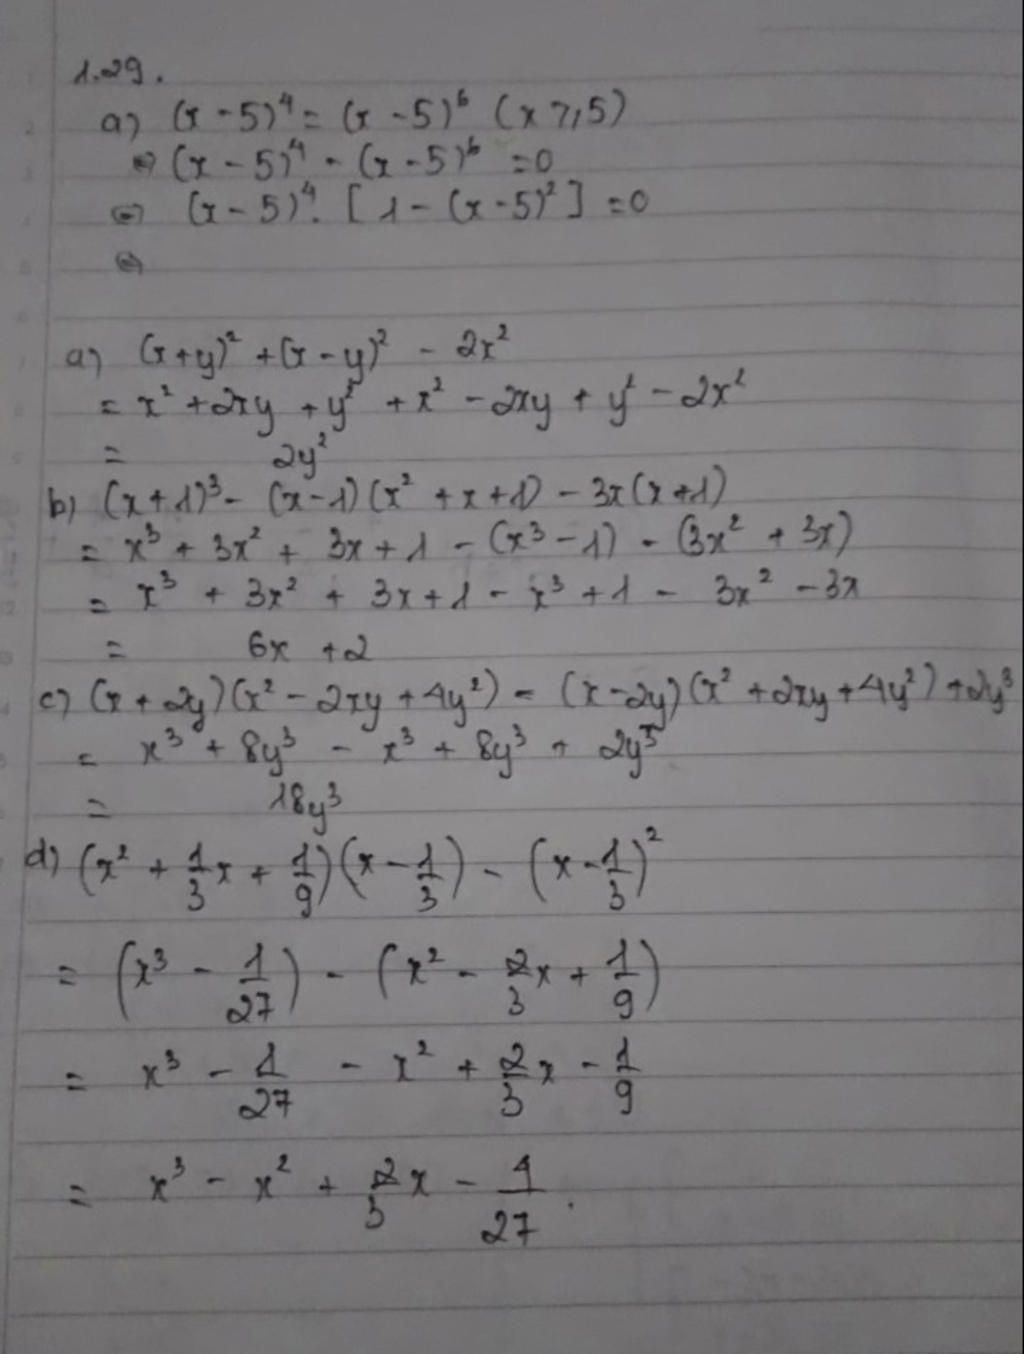 1.29.
a) (x - 5)⁴ = (x - 5)⁶ (x ⩾ 5)
⇔ (x - 5)⁴ - (x - 5)⁶ = 0
⇔ (x - 5)⁴. [1 - (x - 5)²] = 0
⇔
a) (x + y)² + (x - y)² - 2x²
= x² + 2xy + y² + x² - 2xy + y² - 2x²
= 2y²
b) (x + 1)³ - (x - 1)(x² + x + 1) - 3x(x + 1)
= x³ + 3x² + 3x + 1 - (x³ - 1) - (3x² + 3x)
= x³ + 3x² + 3x + 1 - x³ + 1 - 3x² - 3x
= 6x + 2
c) (x + 2y)(x² - 2xy + 4y²) - (x - 2y)(x² + 2xy + 4y²) + 2y³
= x³ + 8y³ - x³ + 8y³ + 2y³
= 18y³
d) (x² + 1/3 x + 1/9)(x - 1/3) - (x - 1/3)²
= (x³ - 1/27) - (x² - 2/3 x + 1/9)
= x³ - 1/27 - x² + 2/3 x - 1/9
= x³ - x² + 2/3 x - 4/27.